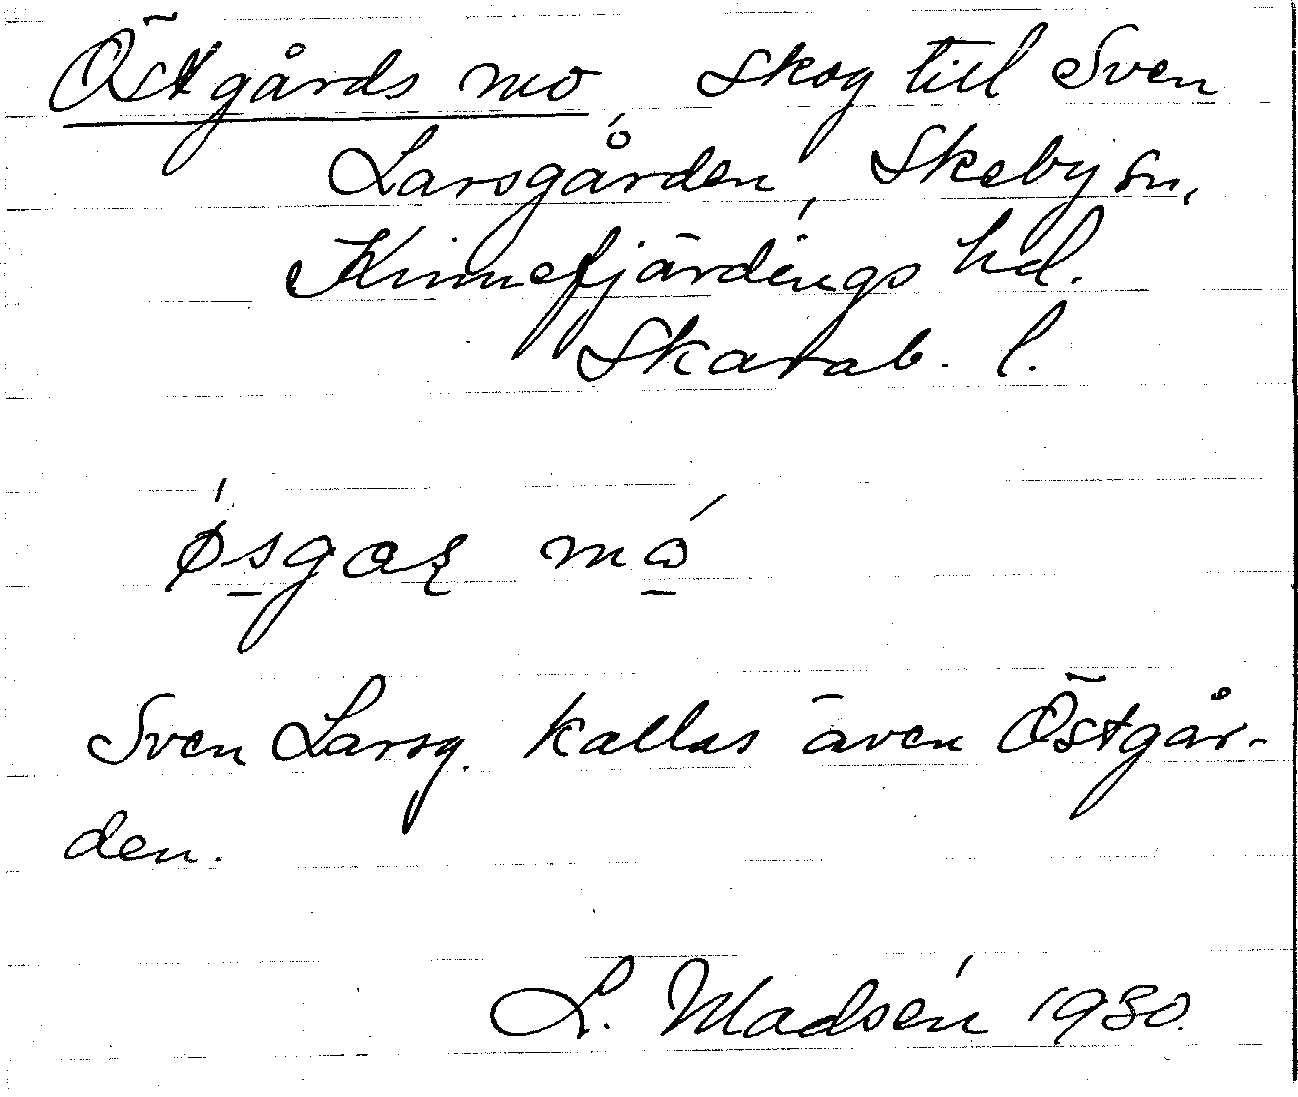 Östgårds mo, skog till Sven
Larsgården, Skeby sn,
Kinnefjärdings hd.
Skarab. l.
mó
Sven Larsg. kallas även Östgår-
den.
L. Madsén 1930.